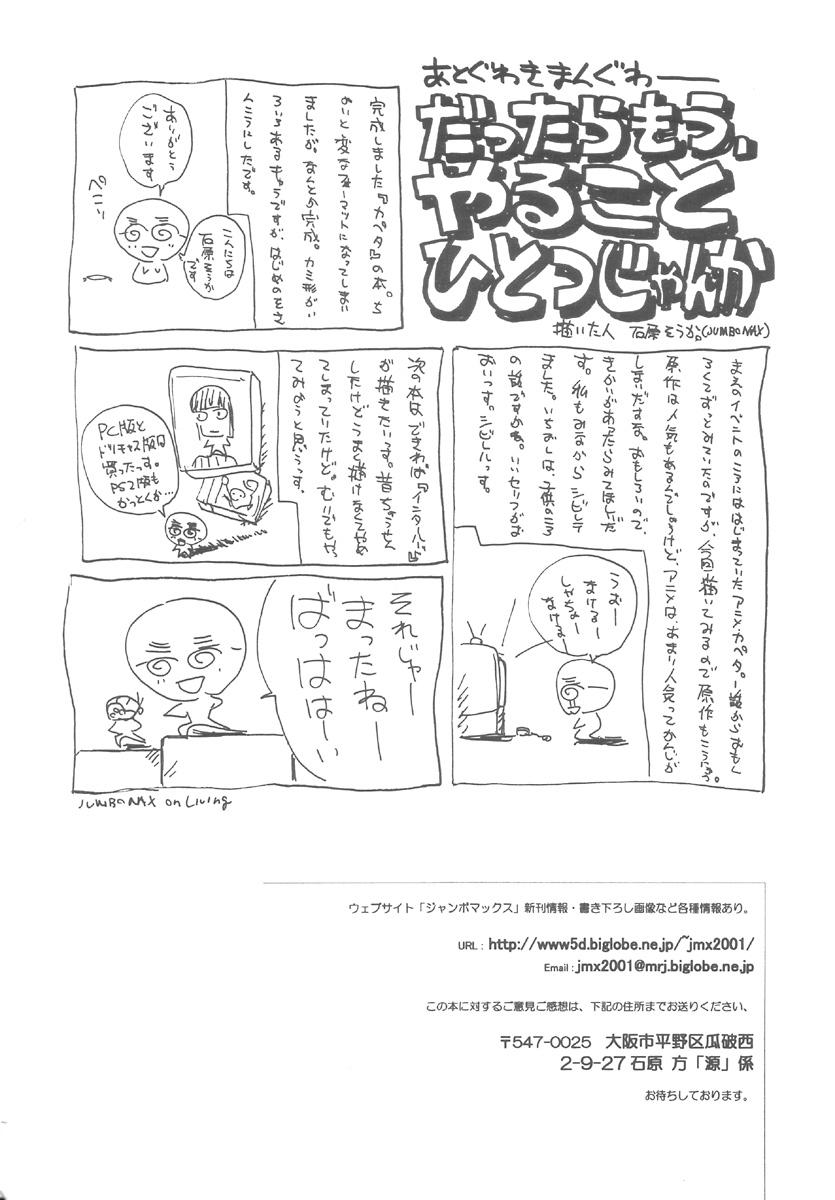 あとぐわきまんぐわー
だったらもう、
やること
ひとつじゃんか
描いた人 石原そうか。(JUMBOMAX)
完成しました『カペタ』の本。ち
ょいと変なフォーマットになってしまい
ましたが。なんとか完成。カミ形がい
ろいろあるキャラですが、はじめのもさ
んこうにしたです。
ありがとう
ございます
こんにちは
石原そうか
です
ペこーり
まえのイベントのころにははじまっていたアニメ・カペタ。一話からおもし
ろくてずっとみていたのですが、今回描いてみるので原作もこうにゅう。
原作は人気もあるんでしょうけど、アニメは、あまり人気ってかんじが
しまいだすな。おもしろいので、
きかいがあったらみてほしいだ
す。私もみながらシビレテ
ました。いちおしは、子供のころ
の話ですかね。いいセリフがな
おいっす。シビレルっす。
うおー
まけるー
しゃちょー
なけるー
次の本は、できれば『インタールード』
が描きたいっす。昔ちょうせん
したけどうまく描けなくてやめ
てしまっていたけど。むりでもやっ
てみようと思うっす。
PC版と
ドリキャス版は
買ったっす。
PS2版も
かっとくか…
それじゃー
まったねー
ばっははーい
JUMBOMAX on Living
ウェブサイト「ジャンボマックス」新刊情報・書き下ろし画像など各種情報あり。
URL : http://www5d.biglobe.ne.jp/~jmx2001/
Email : jmx2001@mrj.biglobe.ne.jp
この本に対するご意見ご感想は、下記の住所までお送りください、
〒547-0025 大阪市平野区瓜破西
2-9-27 石原 方「源」係
お待ちしております。